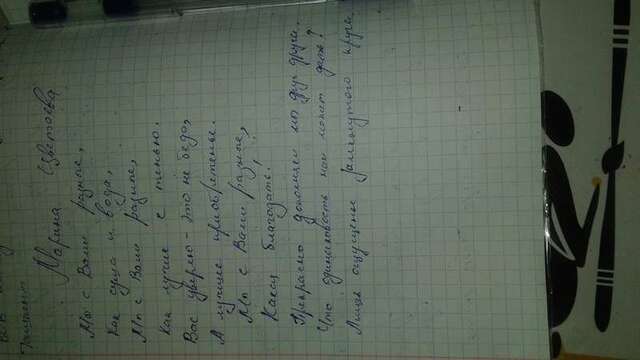 Ташкент
Марина Цветаева
Мы с Вами разные,
Как суша и вода,
Мы с Вами разные,
Как лучик с тенью.
Вас уверяю - это не беда,
А лучшее приобретенье.
Мы с Вами разные,
Какая благодать!
Прекрасно дополняем мы друг друга.
Что одинаковость нам может дать?
Лишь ощущенье замкнутого круга.